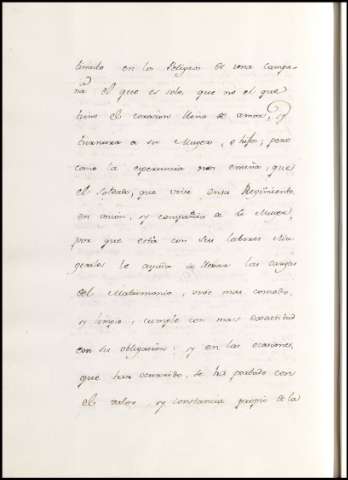 en los Peligros de una campa-
ña el que es solo, que no el que
tiene el corazon lleno de amor, y
ternura a su Muger, e hijos; pero
como la experiencia nos enseña, que
el Soldado, que vive en su Regimiento
en union, y compañia de la Muger,
por que esta con sus labores Mu-
geriles le ayuda a llevar las cargas
del Matrimonio, vive mas comodo,
y limpio, cumple con mas exactitud
con su obligacion; y en las ocasiones
que han ocurrido, se ha portado con
el valor, y constancia propio de la